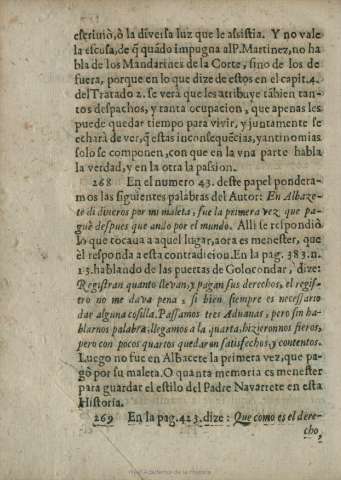 escriuiò,ò la diversa luz que le assistia. Y no vale
la escusa,de q̃ quãdo impugna alP.Martinez,no ha
bla de los Mandarines de la Corte, sino de los de
fuera, porque en lo que dize de estos en el capit.4.
delTratado 2. se verà que les atribuye tãbien tan-
tos despachos, y tanta ocupacion, que apenas les
puede quedar tiempo para vivir, y juntamente se
echarà de ver,q̃ estas inconsequẽcias, yantinomias
solo se componen,con que en la vna parte habla
la verdad,y en la otra la passion.
268 En el numero 43. deste papel pondera-
mos las siguientes palabras del Autor: En Albaze-
te di dineros por mi maleta, fue la primera vez que pa-
guè despues que ando por el mundo. Alli se respondiò
lo que tocava a aquel lugar,aora es menester, que
èl responda a esta contradicion.En la pag. 383.n.
15.hablando de las puertas de Golocondar, dize:
Registran quanto llevan,y pagan sus derechos, el regis-
tro no me dava pena; si bien siempre es necessario
dar alguna cosilla.Passamos tres Aduanas, pero sin ha-
blarnos palabra;llegamos a la quarta,hizieronnos fieros,
pero con pocos quartos quedaron satisfechos,y contentos.
Luego no fue en Albacete la primera vez,que pa-
gò por su maleta.O quanta memoria es menester
para guardar el estilo del Padre Navarrete en esta
Historia.
269 En la pag.423.dize: Que como es el dere-
cho,
Real Academia de la Historia